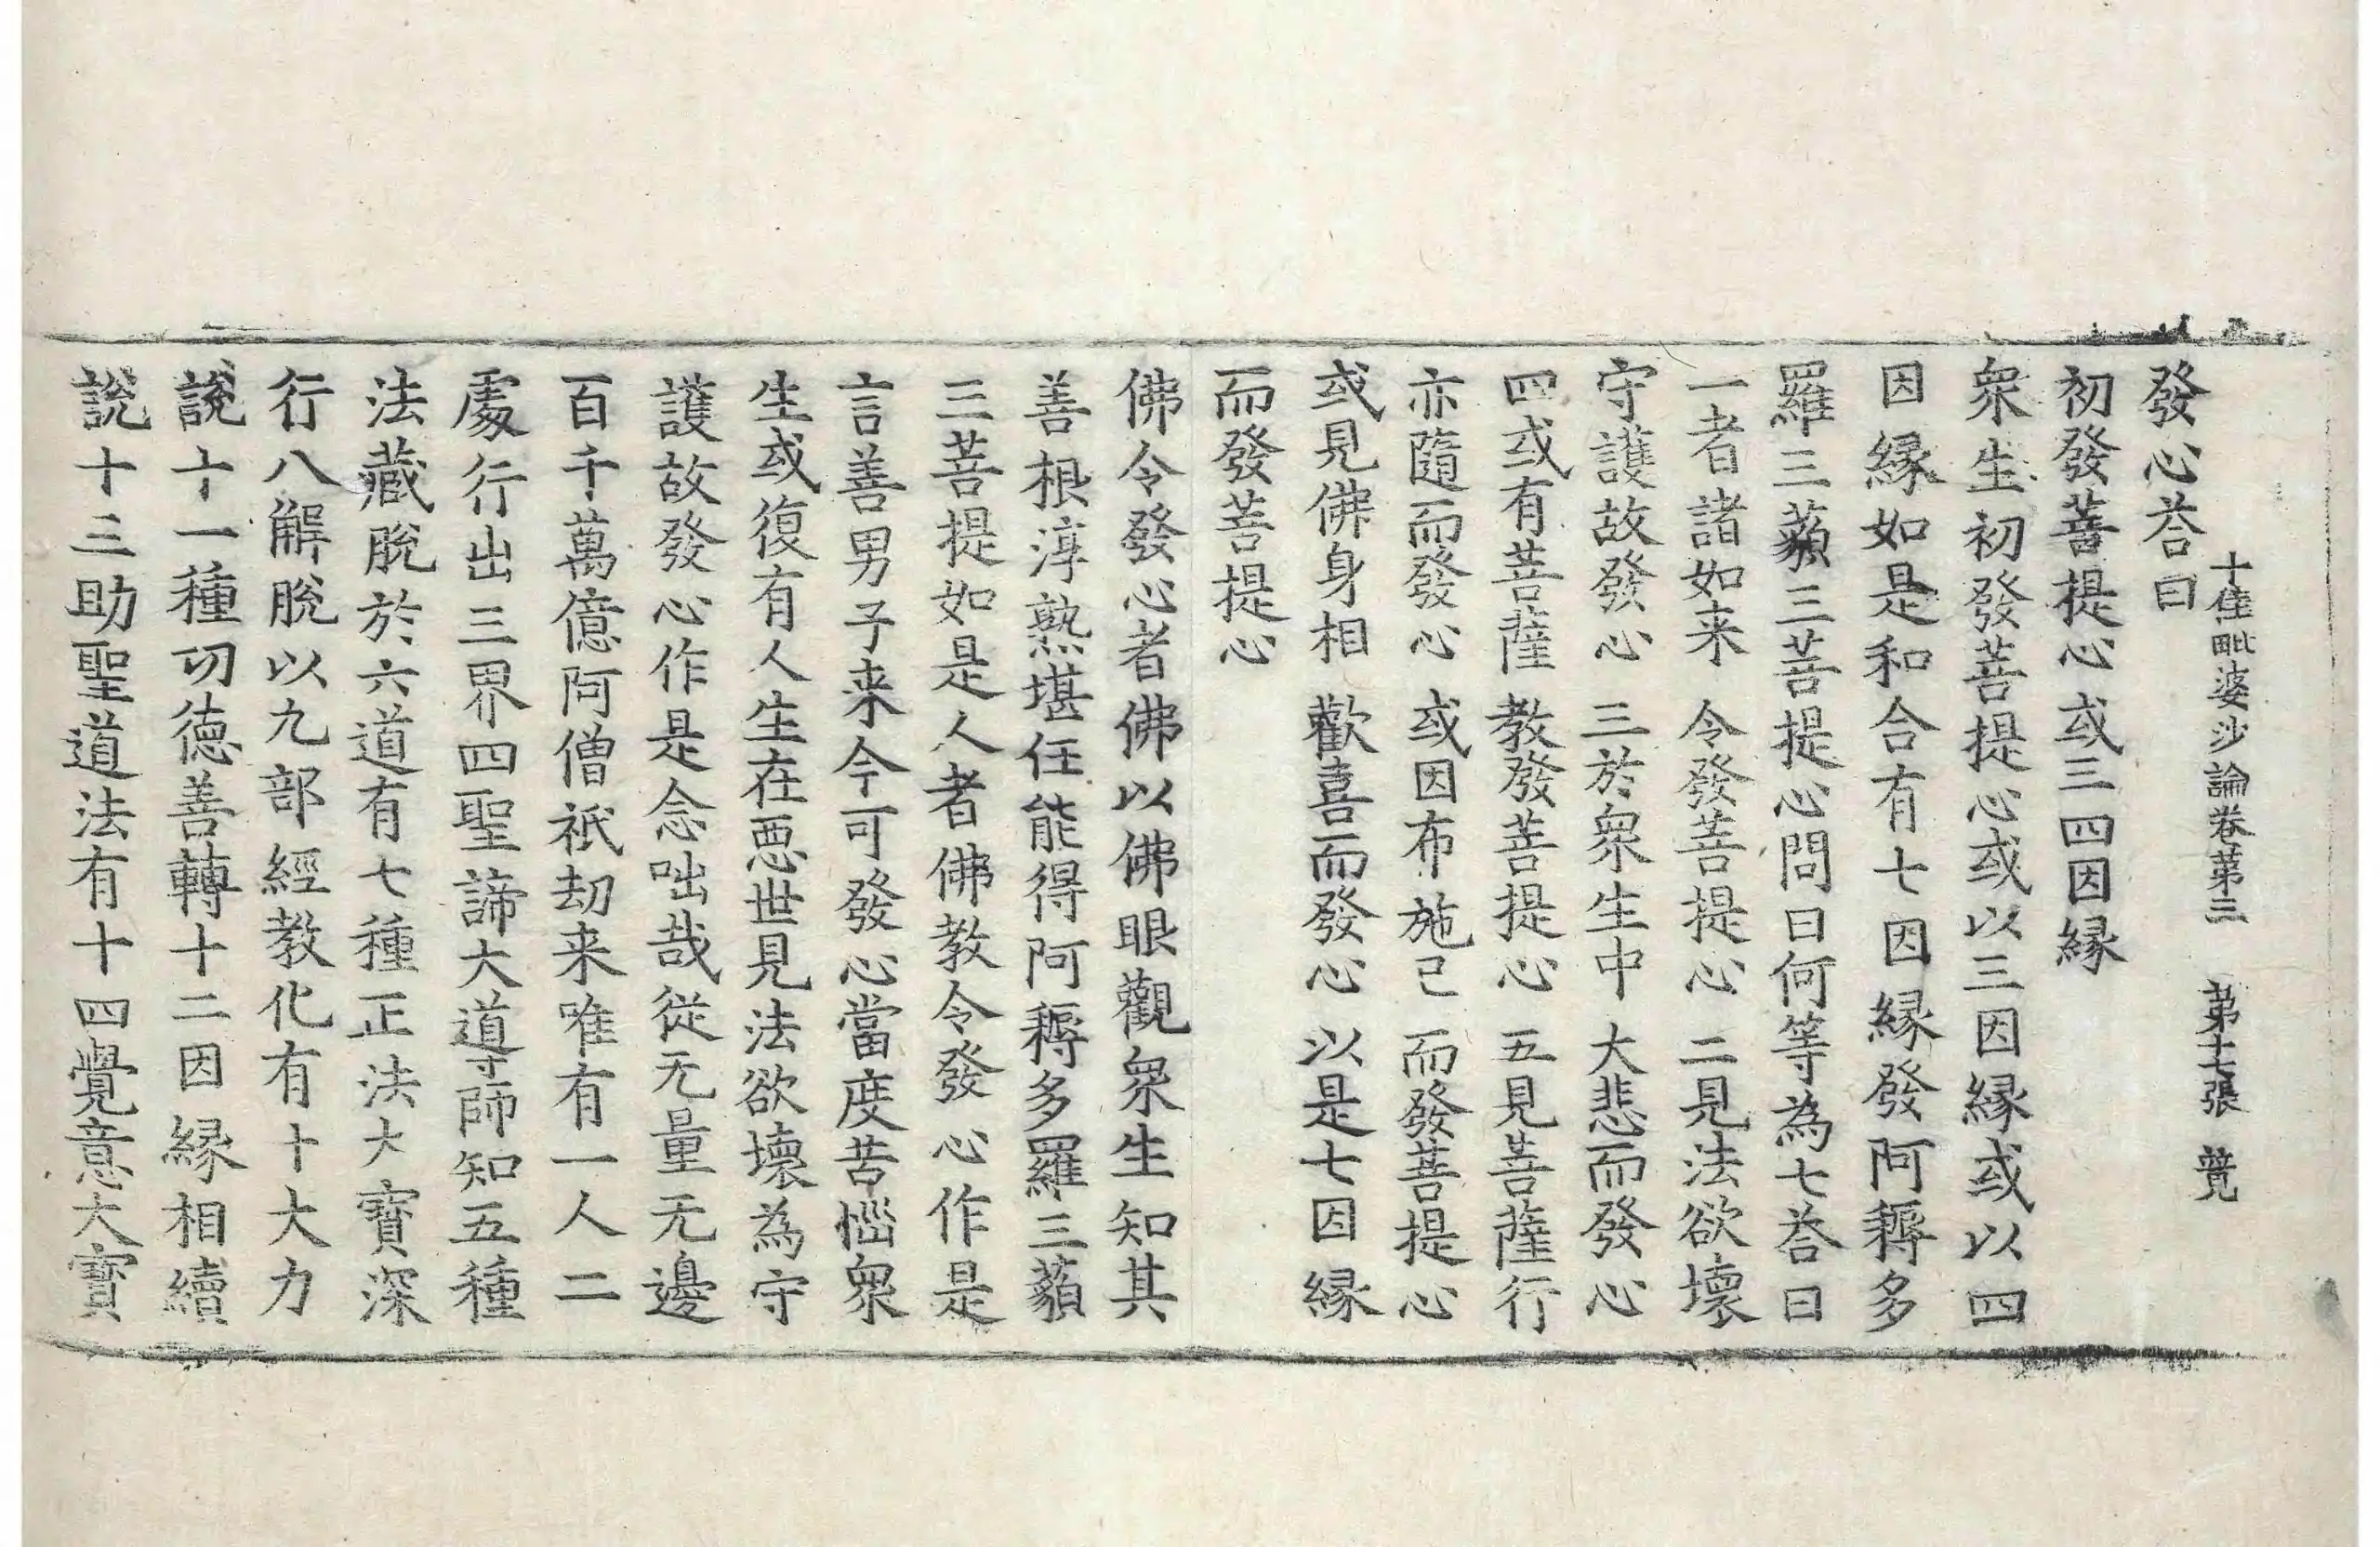 十住毗婆沙論卷第三　第十七張　竟
發心荅曰
初發菩提心　或三四因縁
衆生初發菩提心或以三因縁或以四
因縁如是和合有七因縁發阿耨多
羅三藐三菩提心問曰何等為七荅曰
一者諸如来　令發菩提心　二見法欲壞
守護故發心　三於衆生中　大悲而發心
四或有菩薩　教發菩提心　五見菩薩行
亦隨而發心　或因布施已　而發菩提心
或見佛身相　歡喜而發心　以是七因縁
而發菩提心
佛令發心者佛以佛眼觀衆生知其
善根淳熟堪任能得阿耨多羅三藐
三菩提如是人者佛教令發心作是
言善男子来今可發心當度苦惱衆
生或復有人生在惡世見法欲壞為守
護故發心作是念咄哉従无量无邊
百千萬億阿僧祇劫来唯有一人二
處行出三界四聖諦大導師知五種
法藏脫於六道有七種正法大寶深
行八解脫以九部經教化有十大力
說十一種功德善轉十二因縁相續
說十三助聖道法有十四覺意大寶